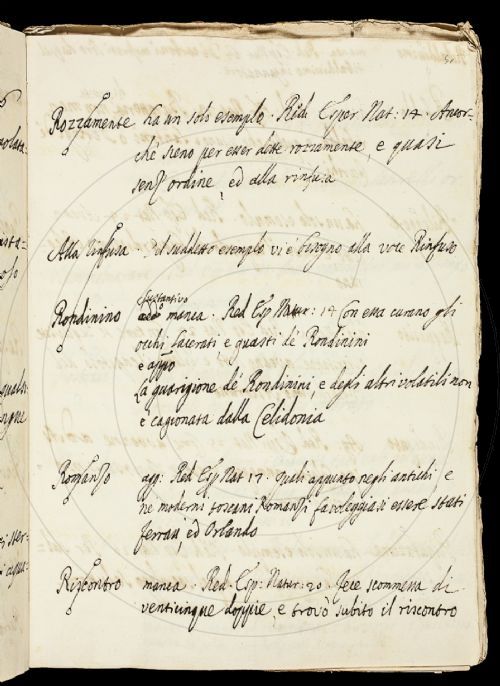 Rozzamente ha un solo esempio. Redi Esper Nat: 14. Ancor-
chè sieno per esser dette rozzamente, e quasi
senz'ordine, ed alla rinfusa
Alla rinfusa. Il suddetto esempio vi è bisogno alla voce Rinfuso
sustantivo
Rondinino manca. Red Esp Natur: 14 Con essa curano gli
occhi lacerati, e guasti de' Rondinini
e appo
La guarigione de' Rondinini, e degli altri volatili non
è cagionata dalla Celidonia
Romanzo agg: Red Esp Nat 17. quali appunto negli antichi, e
ne moderni toscani Romanzi favoleggiasi essere stati
ferrau, ed Orlando
Riscontro manca. Red. Esp: Natur: 20. Fece scommessa di
venticinque doppie, e trovò subito il riscontro